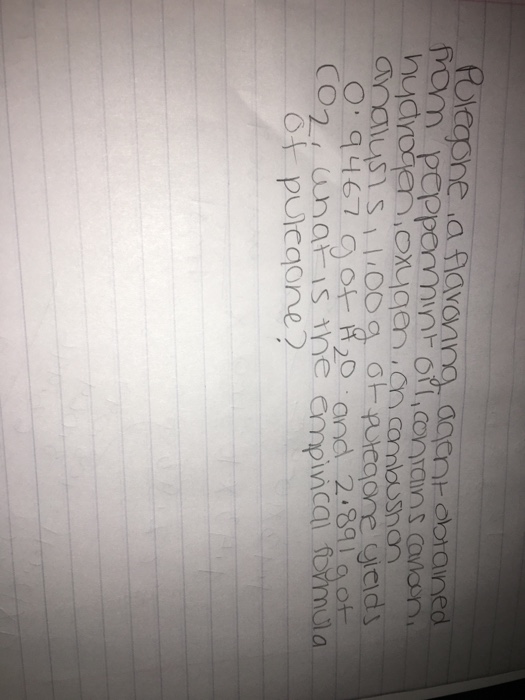 Pulegone, a flavoring agent obtained
from peppermint oil, contains carbon,
hydrogen, oxygen, on combustion
analysis, 1.00g of pulegone yields
0.9467 g of H2O. and 2.891 g of
CO2; what is the empirical formula
of pulegone?